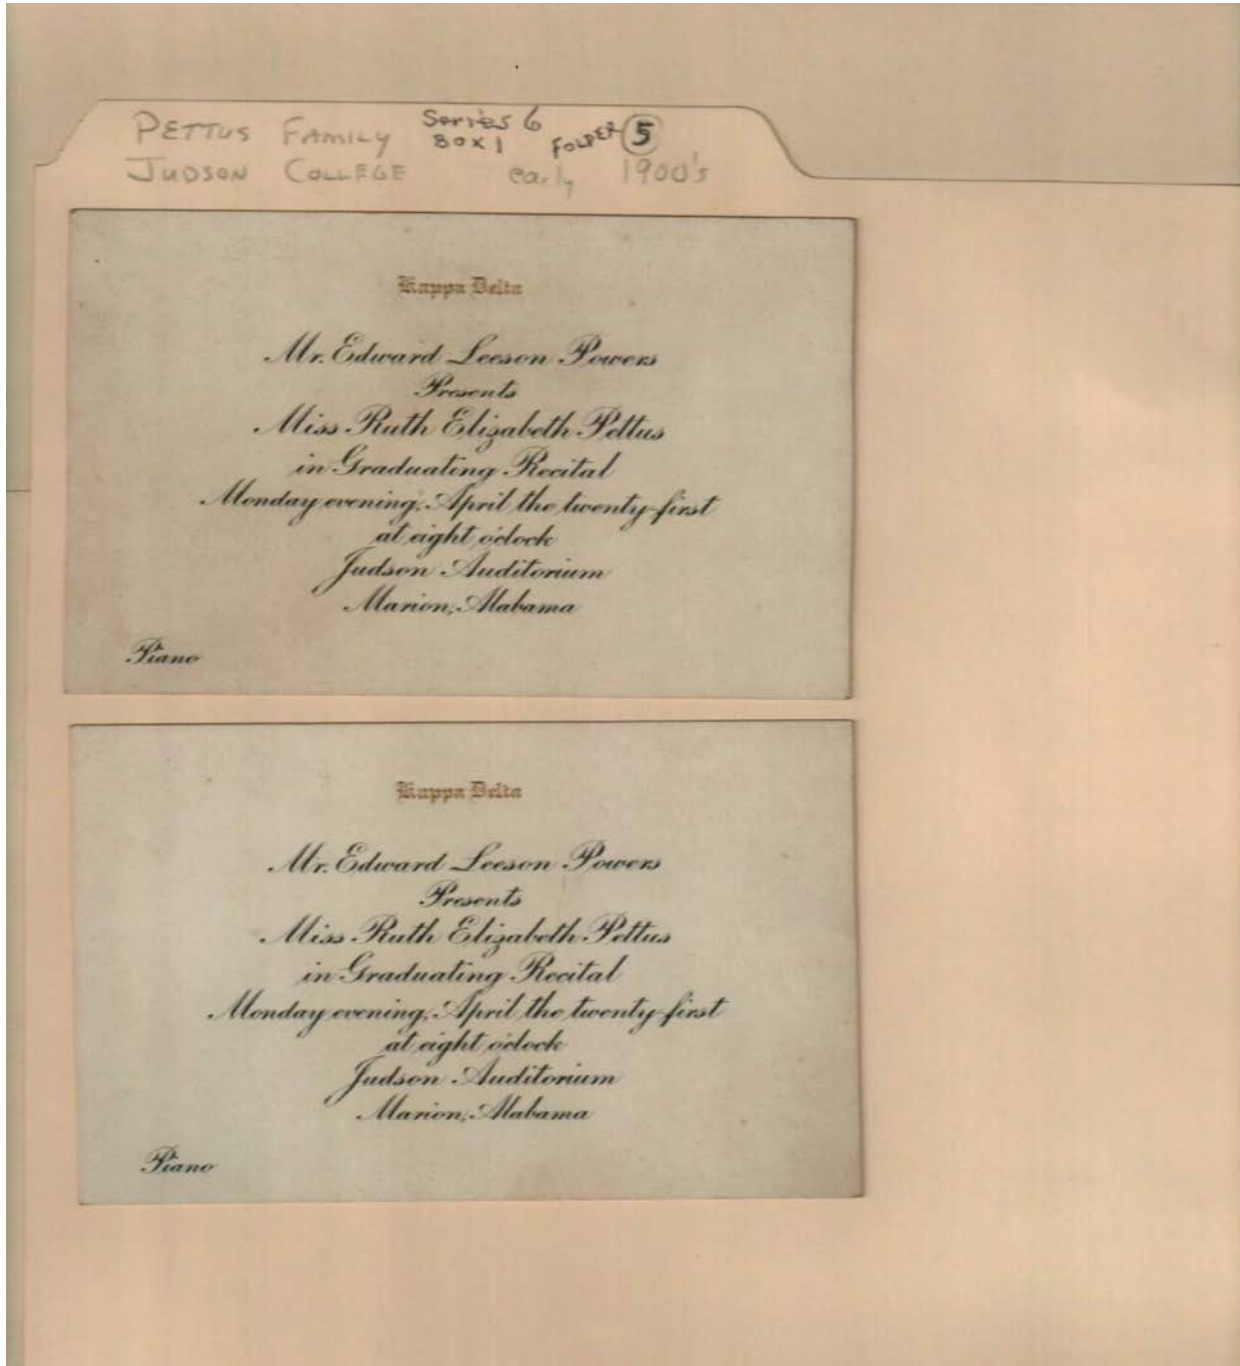 PETTUS FAMILY Series 6
BOX 1 FOLDER 5
JUDSON COLLEGE early 1900's
Kappa Delta
Mr. Edward Leeson Powers
Presents
Miss Ruth Elizabeth Pettus
in Graduating Recital
Monday evening, April the twenty-first
at eight o'clock
Judson Auditorium
Marion, Alabama
Piano
Kappa Delta
Mr. Edward Leeson Powers
Presents
Miss Ruth Elizabeth Pettus
in Graduating Recital
Monday evening, April the twenty-first
at eight o'clock
Judson Auditorium
Marion, Alabama
Piano